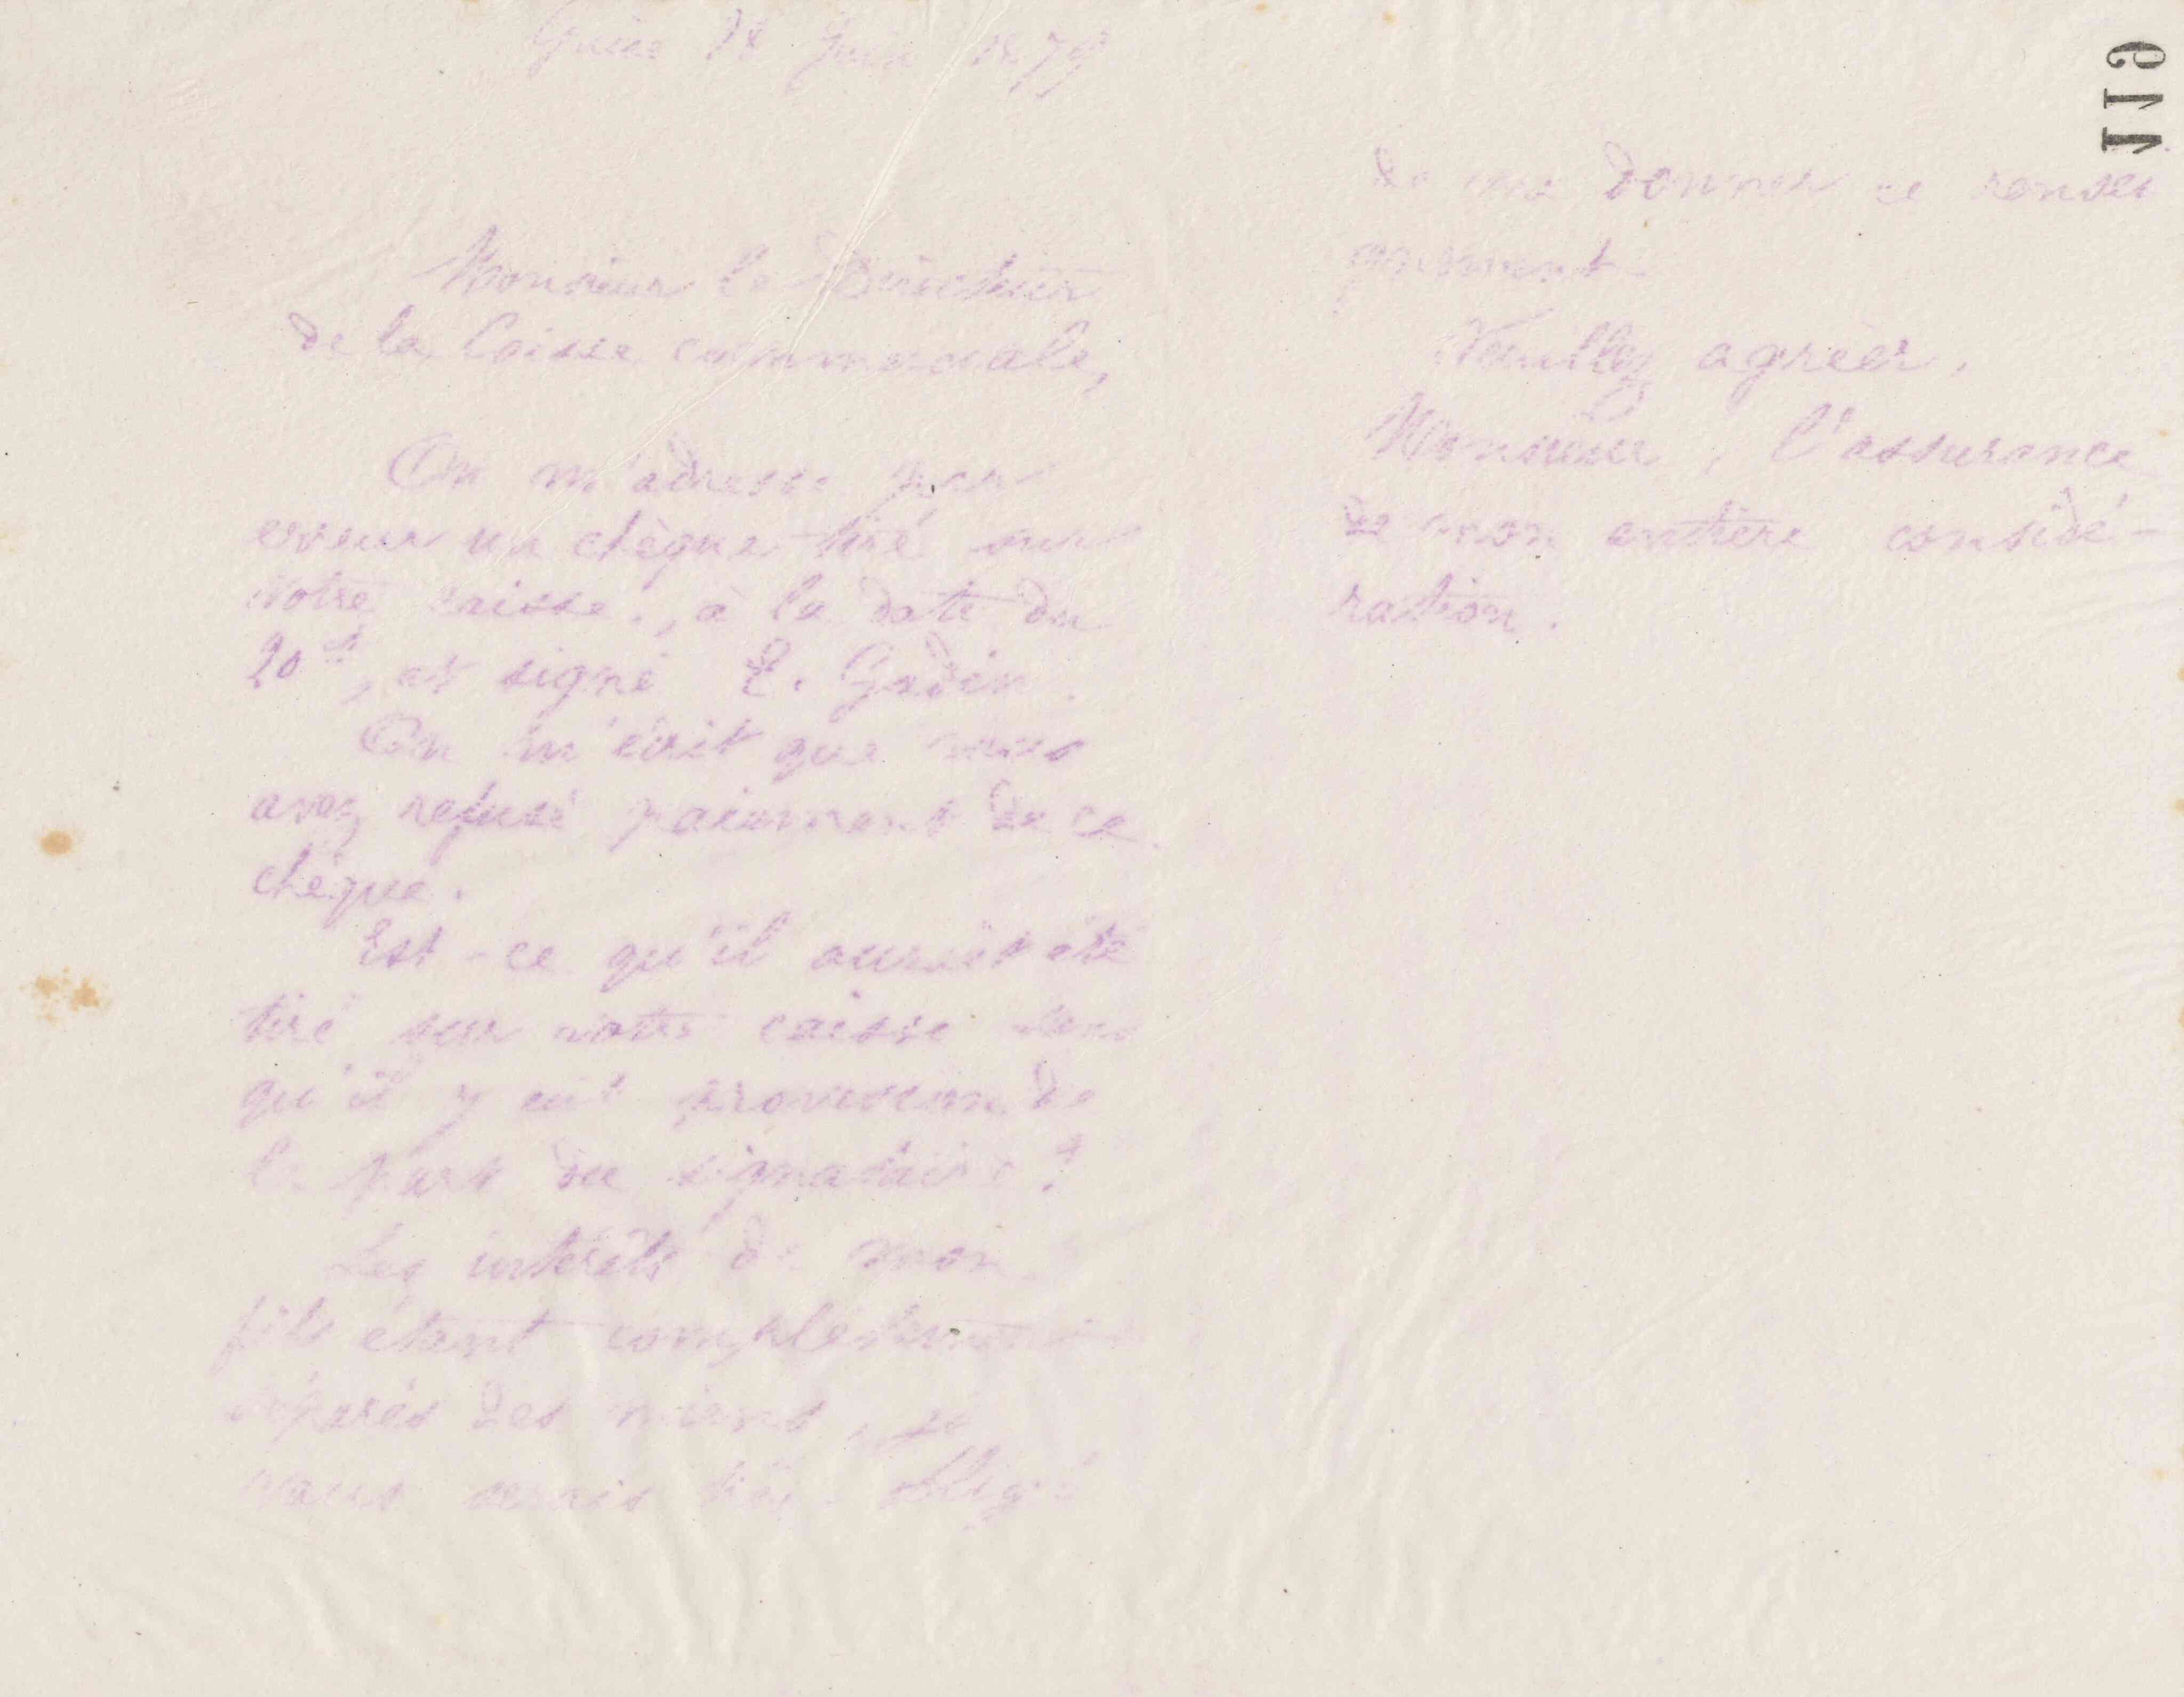 Guise 18 Juin 1879
Monsieur le Directeur
de la Caisse commerciale,
On m'adresse par
erreur un chèque tiré sur
votre caisse, à la date du
20 ct, et signé E. Godin.
On m'écrit que vous
avez refusé paiement de ce
chèque.
Est-ce qu'il aurait été
tiré sur votre caisse sans
qu'il y eut provision de
la part du signataire ?
Les intérêts de mon
fils étant complètement
séparés des miens, je
vous serais très obligé
119
de me donner ce rensei
gnement.
Veuillez agréer,
Monsieur, l'assurance
de mon entière considé-
ration.